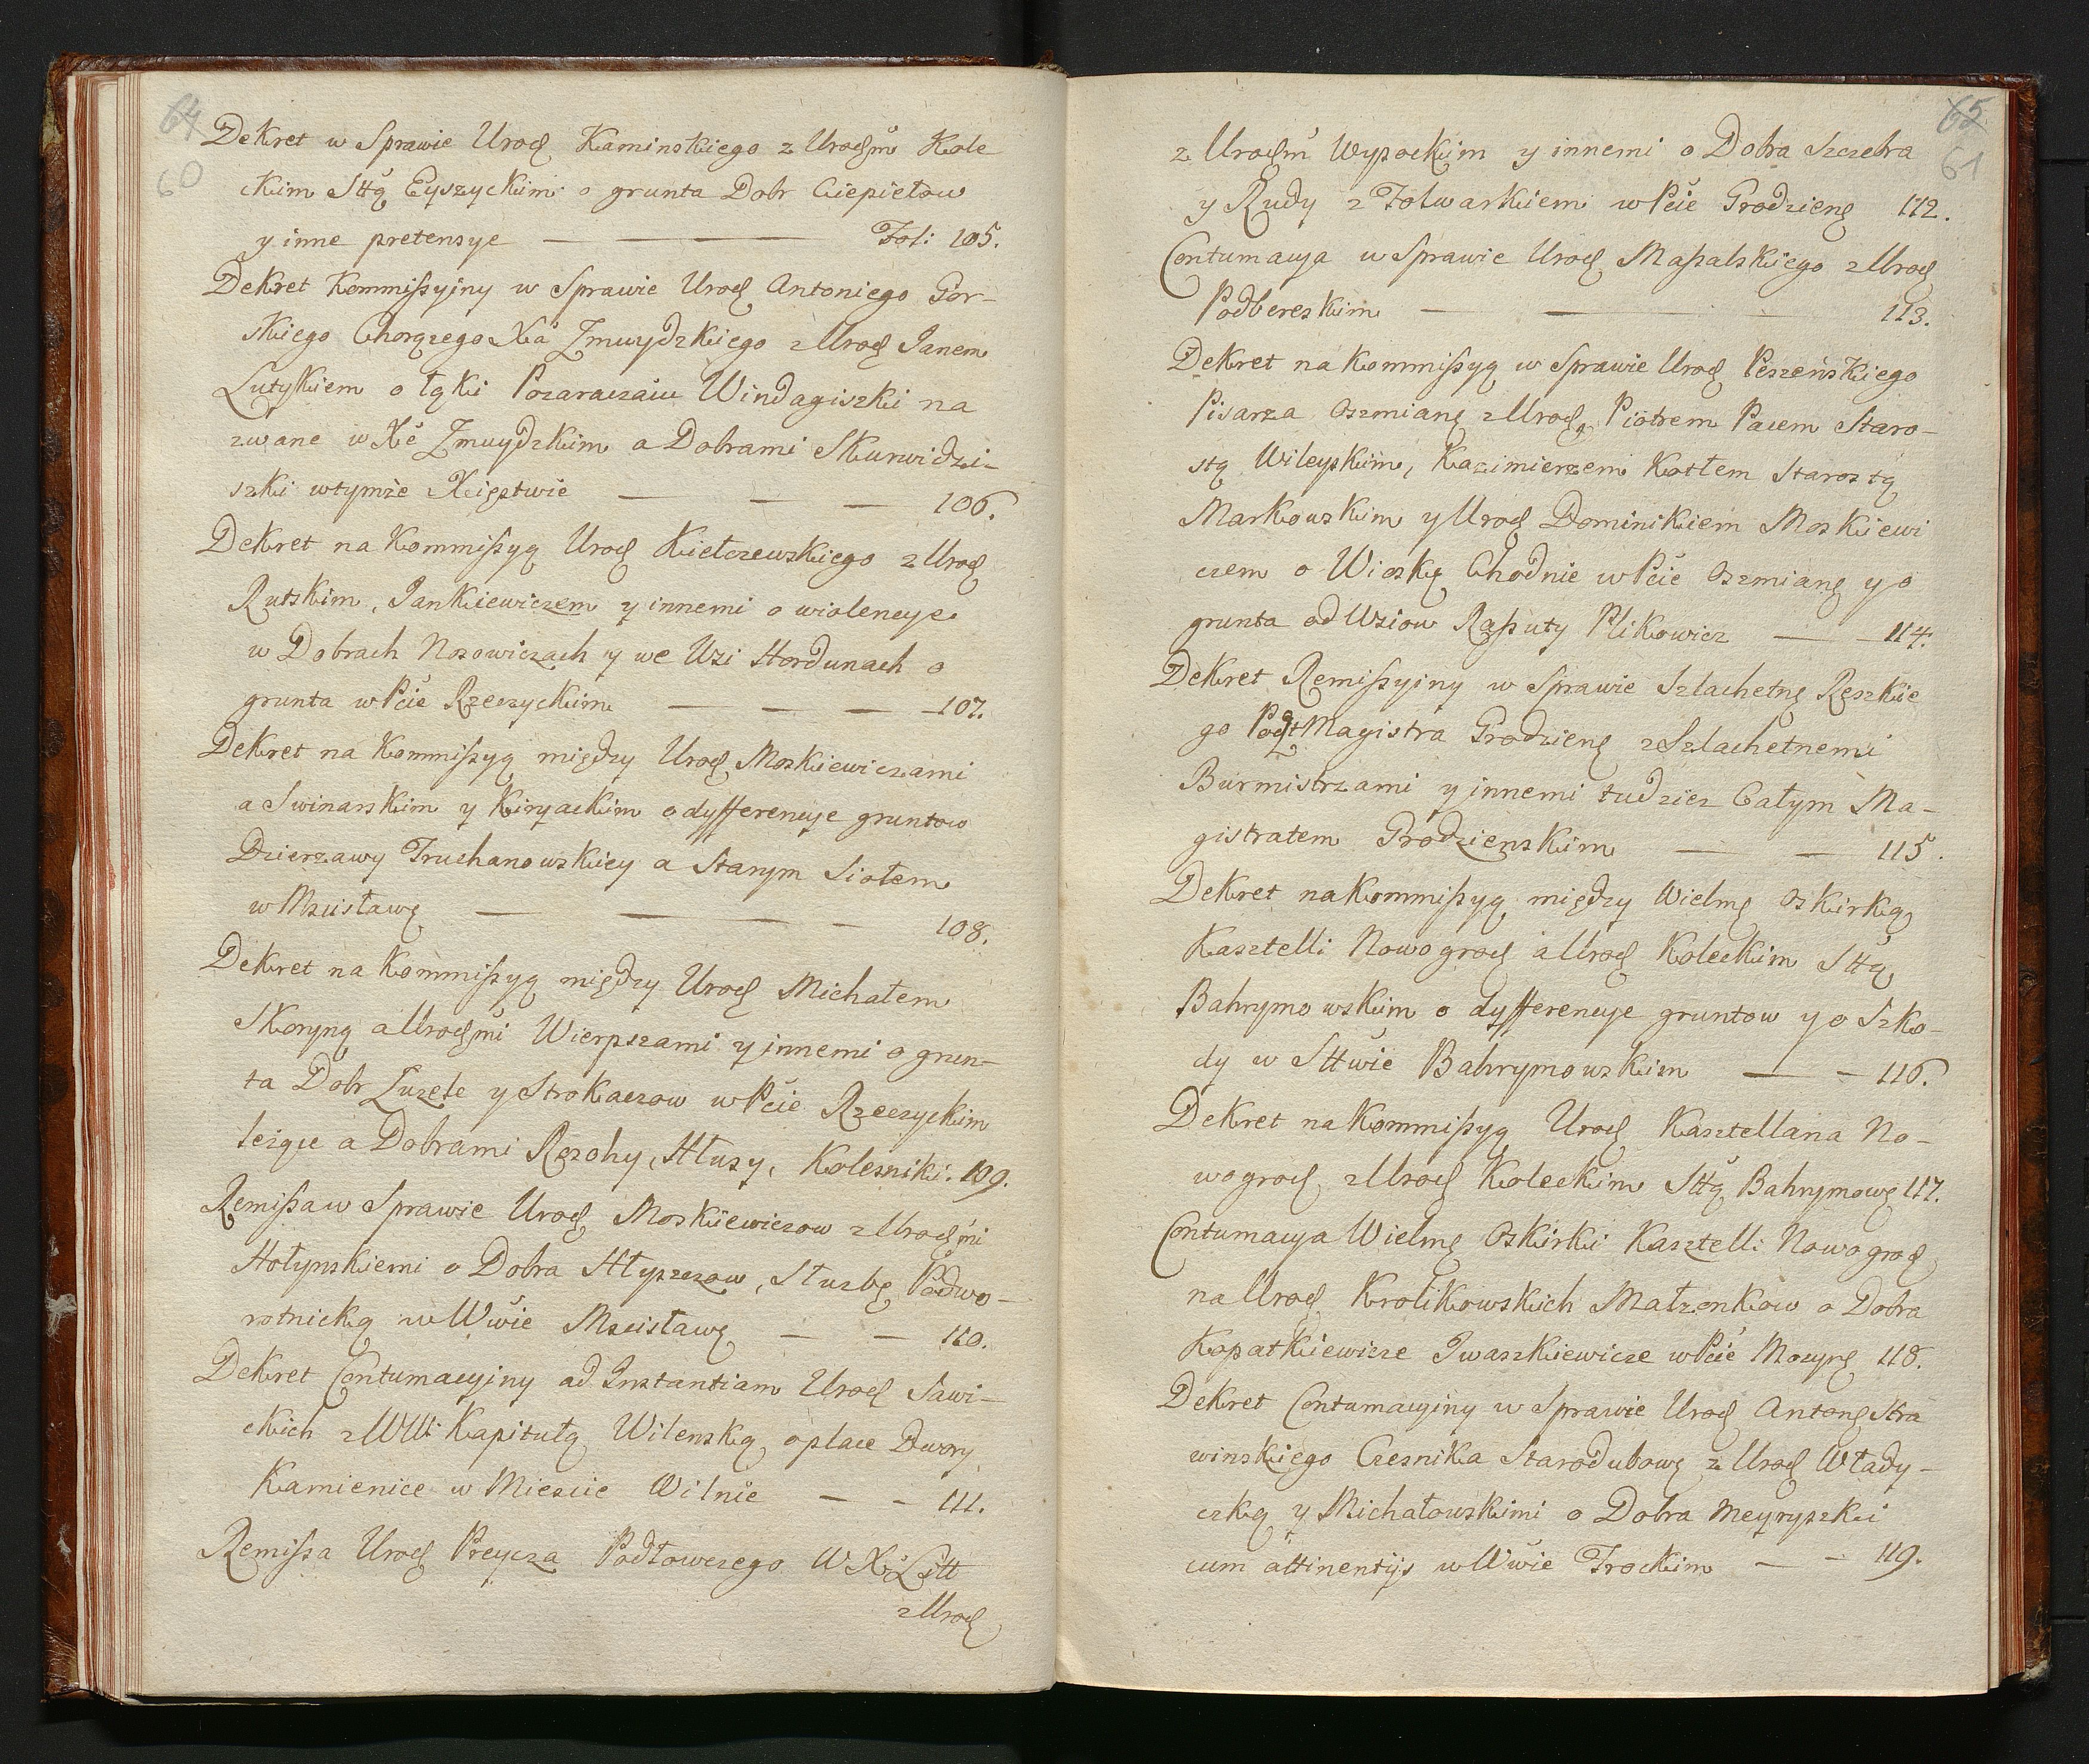 64
60
Dekret w Sprawie Urod Kaminskiego z Urodm̃ Kole
ckim Sttą Eyszyckim o grunta Dobr Ciepielow
y inne pretensye — — Fol: 105.
Dekret Kommissyiny w Sprawie Urod Antoniego Gor-
skiego Chorązego Xa Zmuydzkiego z Urod Janem
Lutykiem o łąki Pozaraczaiu Windagiszki na
zwane w Xe Zmuydzkim a Dobrami Skurwidzi-
szki wtymże Xięstwie — — — 106.
Dekret na Kommissyą Urod Kiełczewskiego z Urod
Rutskim, Jankiewiczem y innemi o wiolencye
w Dobrach Nosowiczach y we Wsi Hordunach o
grunta w Pcie Rzeczyckim — — — 107.
Dekret na Kommissyą między Urod Moskiewiczami
a Swinarskim y Kiryackim o dyfferencye gruntow
Dzierzawy Truchanowskiey a Starym Siołem
w Mścisławę — — — — 108.
Dekret na Kommissyą między Urod Michałem
Skoryną a Urodmi Wierpszami y innemi o grun-
ta Dobr Luzele y Strokaczow w Pcie Rzeczyckim
leżące a Dobrami Rozohy, Hłuszy, Kolesniki: 109.
Remissa w Sprawie Urod Moskiewiczow z Urodmi
Hołynskiemi o Dobra Hłyszczow, Służbę Podwo-
rotnicką w Wwie Mścisławę — — 110.
Dekret Contumacyiny ad Instantiam Urod Sawi-
ckich z WWi Kapitułą Wilenską o place Dwory
Kamienice w Miescie Wilnie — — 111.
Remissa Urod Preycza Podłowczego W X Litt
z Urod
65
61
z Urodm̃ Wysockim y innemi o Dobra Szczebra
y Rudy z Folwarkiem w Pcie Grodzienę 112.
Contumacya w Sprawie Urod Massalskiego z Urod
Podbereskim — — 113.
Dekret na Kommissyą w Sprawie Urod Peszeńskiego
Pisarza Oszmianę z Urod Piotrem Pacem Staro-
stą Wileyskim, Kazimierzem Kotłem Starostą
Markowskim y Urod Dominikiem Moskiewi
czem o Wioskę Chodnie w Pcie Oszmianę y o
grunta od Wsiow Raputy Plikowicz — — 114.
Dekret Remissyiny w Sprawie Szlachetnę Reszkie
go Pocztmagistra Grodzienę z Szlachetnemi
Burmistrzami y innemi tudziez Całym Ma-
gistratem Grodzienskim — — 115.
Dekret na Kommissyą między Wielmę Oskirką
Kasztelli Nowogrod a Urod Koleckim Sttą
Bahrymowskim o dyfferencye gruntow y o Szko-
dy w Sttwie Bahrymowskim — — 116.
Dekret na Kommissyą Urod Kasztellana No-
wogrod z Urod Koleckim Sttą Bahrymowę 117.
Contumacya Wielmę Oskirki Kasztelli Nowogrod
na Urod Krolikowskich Małzonkow o Dobra
Kopatkiewicze Jwaszkiewicze w Pcie Mozyrę 118.
Dekret Contumacyiny w Sprawie Urod Antonę Stra
winskiego Czesnika Starodubowę z Urod Włady-
czką y Michałowskimi o Dobra Meyryszki
cum attinentijs w Wwie Trockim — — 119.